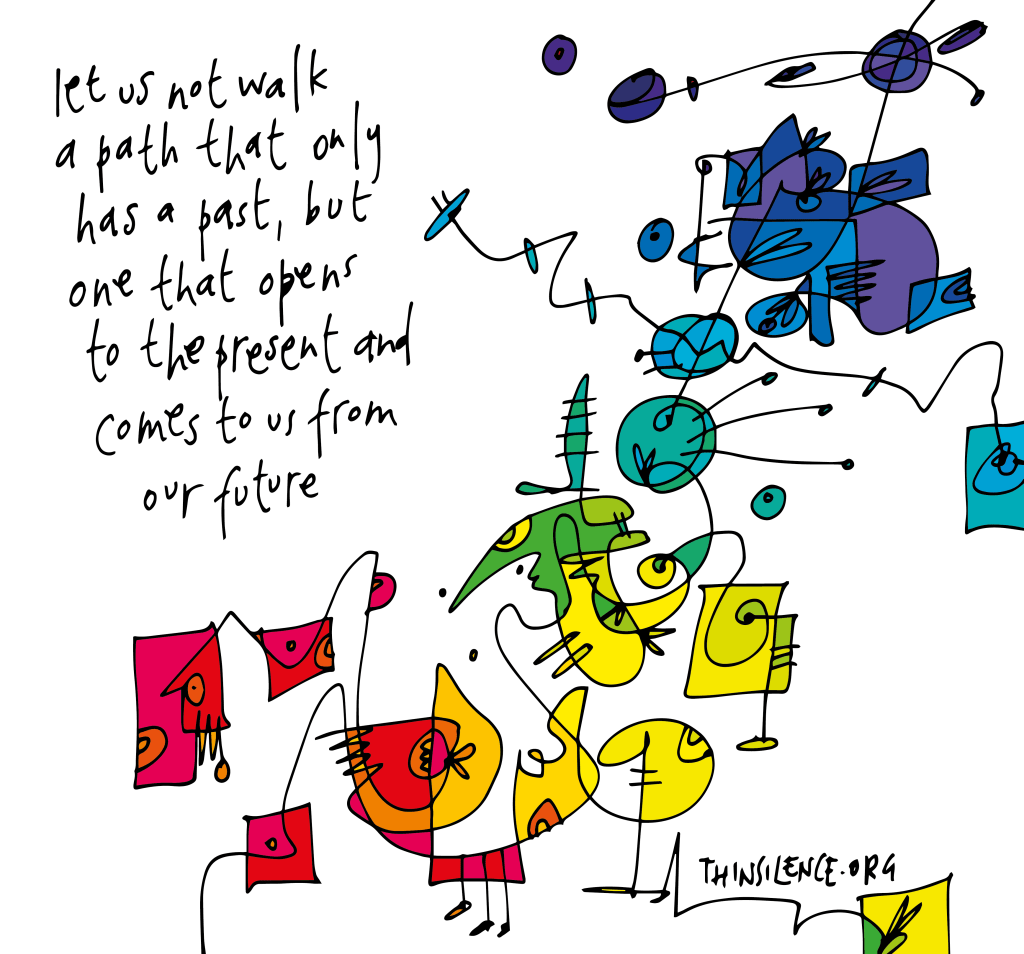 let us not walk
a path that only
has a past, but
one that opens
to the present and
comes to us from
our future
THINSILENCE.ORG